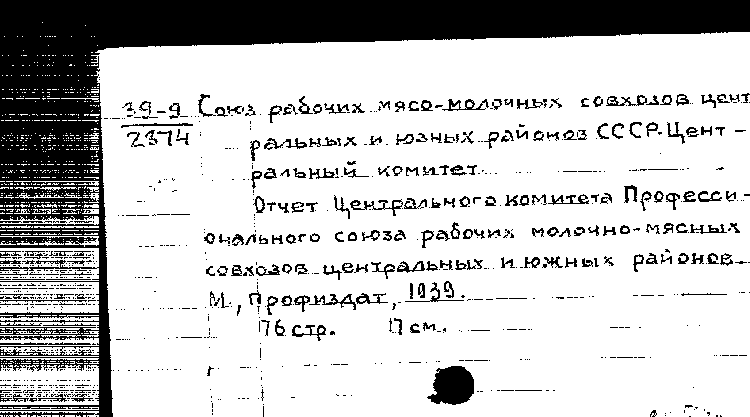 39-9 Союз рабочих мясо-молочных совхозов цент
2374 ральных и южных районов СССР. Цент-
ральный комитет.
Отчет Центрального комитета Професси-
онального союза рабочих молочно-мясных
совхозов центральных и южных районов.
М., Профиздат, 1939.
76 стр. 17 см.